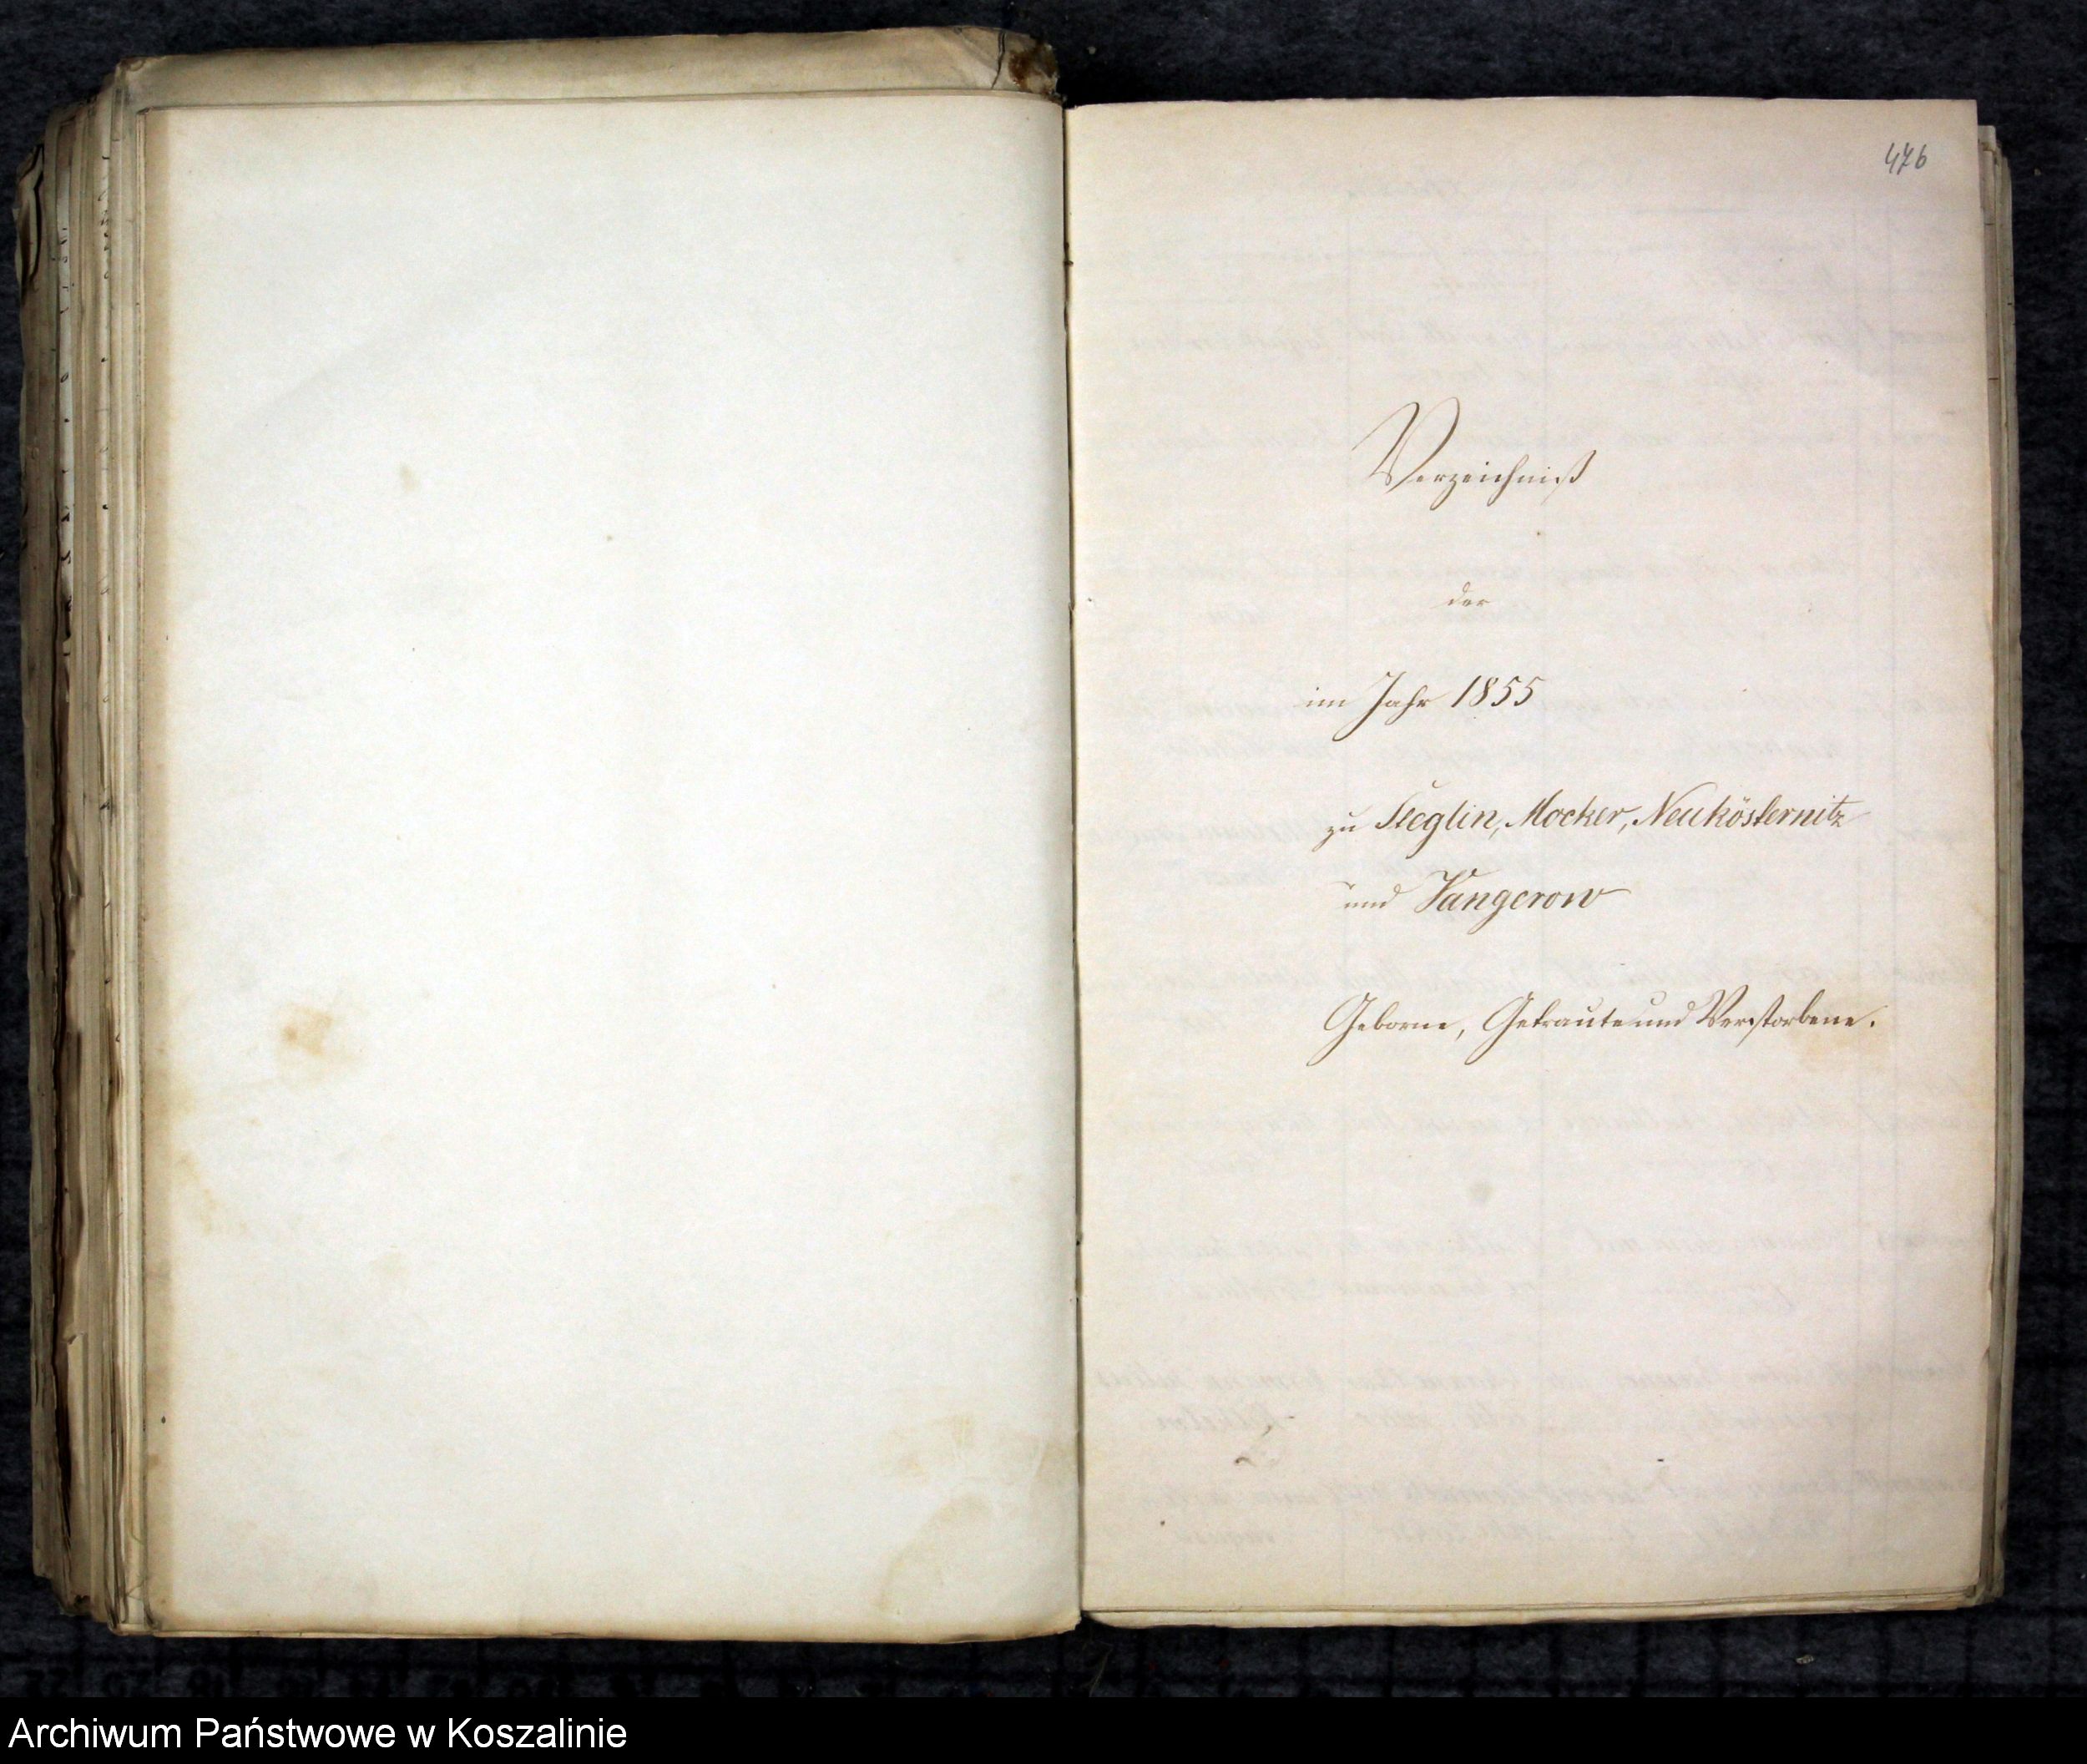 476
Verzeichniß
der
im Jahr 1855
zu Steglin, Mocker, Neukösternitz
und Vangerow
Geborne, Getraute und Verstorbene.
Archiwum Państwowe w Koszalinie